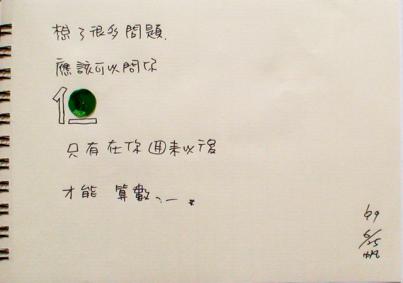 想了很多問題.
應該可以問你
1
只有在你回來以後
才能 算數
69
6/25